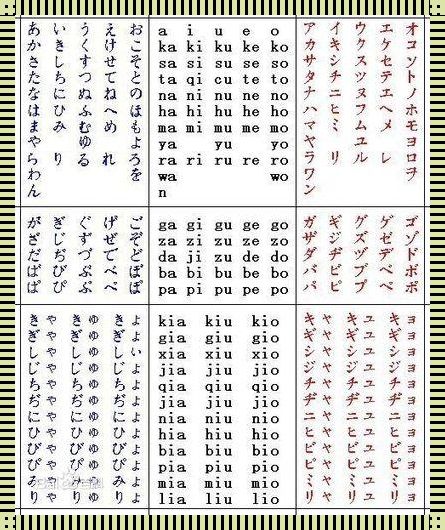 あ い う え お a i u e o ア イ ウ エ オ
か き く け こ ka ki ku ke ko カ キ ク ケ コ
さ し す せ そ sa si su se so サ シ ス セ ソ
た ち つ て と ta qi cu te to タ チ ツ テ ト
な に ぬ ね の na ni nu ne no ナ ニ ヌ エ ノ
は ひ ふ へ ほ ha hi hu he ho ハ ヒ フ ヘ ホ
ま み む め も ma mi mu me mo マ ミ ム メ モ
や ゆ よ ya yu yo ヤ ユ ヨ
ら り る れ ろ ra ri ru re ro ラ リ ル レ ロ
わ を wa wo ワ ヲ
ん n ン
が ぎ ぐ げ ご ga gi gu ge go ガ ギ グ ゲ ゴ
ざ じ ず ぜ ぞ za zi zu ze zo ザ ジ ズ ゼ ゾ
だ ぢ づ で ど da ji zu de do ダ ヂ ヅ デ ド
ば び ぶ べ ぼ ba bi bu be bo バ ビ ブ ベ ボ
ぱ ぴ ぷ ぺ ぽ pa pi pu pe po パ ピ プ ペ ポ
きゃ きゅ きょ kia kiu kio キャ キュ キョ
ぎゃ ぎゅ ぎょ gia giu gio ギャ ギュ ギョ
しゃ しゅ しい xia xiu xio シャ シュ ショ
じゃ じゅ じょ jia jiu jio ジャ ジュ ジョ
ちゃ ちゅ ちょ qia qiu qio チャ チュ チョ
ぢゃ ぢゅ ぢょ jia jiu jio ヂャ ヂュ ヂョ
にゃ にゅ にょ nia niu nio ニャ ニュ ニョ
ひゃ ひゅ ひょ hia hiu hio ヒャ ヒュ ヒョ
びゃ びゅ びょ bia biu bio ビャ ビュ ビョ
ぴゃ ぴゅ ぴょ pia piu pio ピャ ピュ ピョ
みゃ みゅ みょ mia miu mio ミャ ミュ ミョ
りゃ りゅ りょ lia liu lio リャ リュ リョ